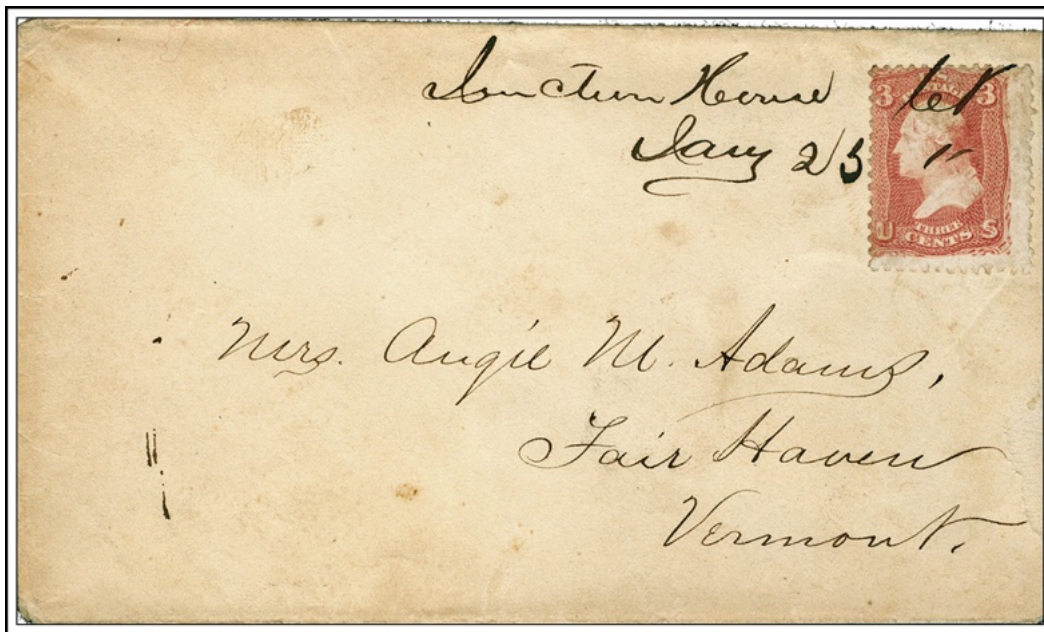 Junction House
Jany 23
3 3
U THREE S
CENTS
Mrs. Angie M. Adams,
Fair Haven
Vermont.